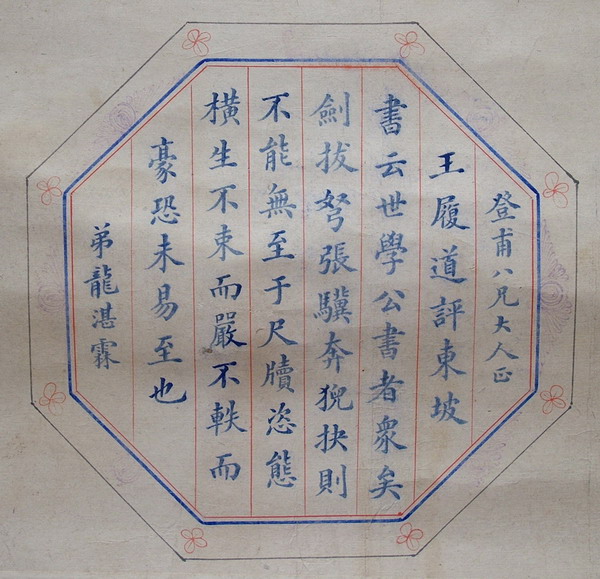 登甫八兄大人正
王履道評東坡
書云世學公書者衆矣
劍拔弩張驥奔猊抉則
不能無至于尺牘恣態
橫生不束而嚴不軼而
豪恐未易至也
弟龍湛霖